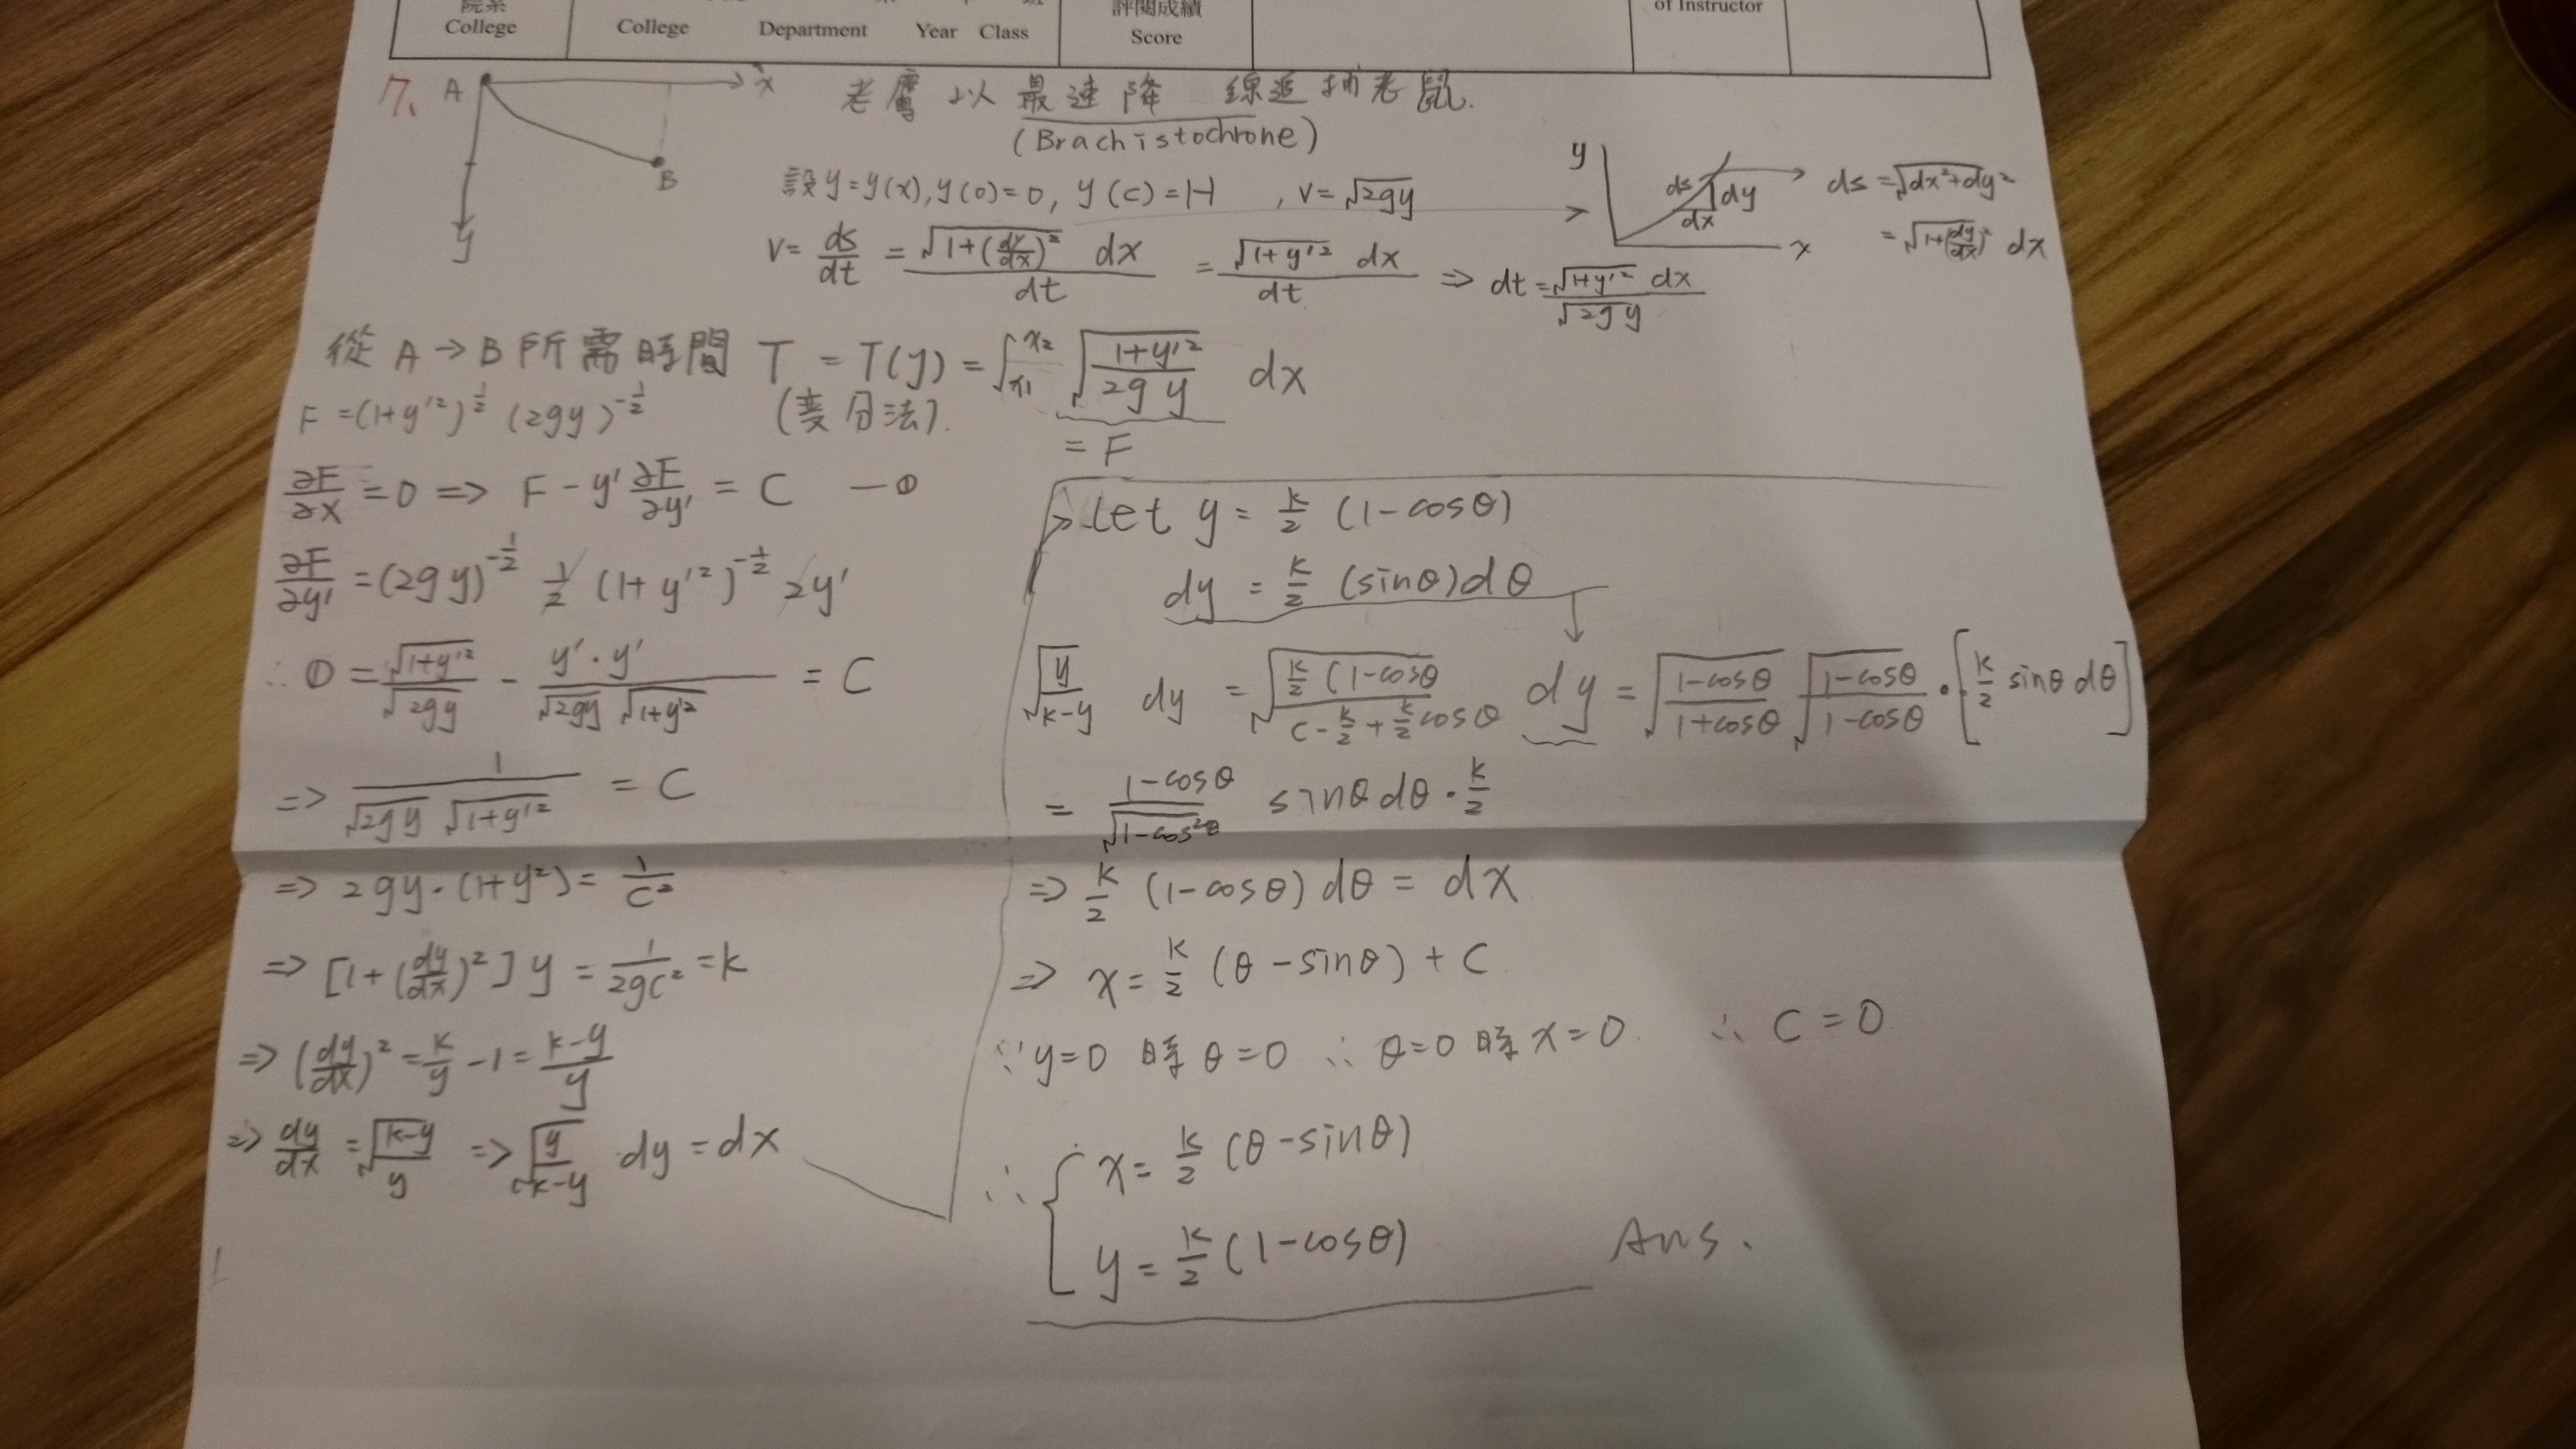 院系
College
College Department Year Class
評閱成績
Score
of Instructor
7、
A
x
B
y
老鷹以最速降線追捕老鼠.
(Brachistochrone)
設 y=y(x), y(0)=0, y(c)=H , v=√(2gy)
y
ds
dy
dx
x
ds = √(dx²+dy²)
= √(1+(dy/dx)²) dx
v = ds/dt = √(1+(dy/dx)²) dx / dt = √(1+y'²) dx / dt ⇒ dt = √(1+y'²) dx / √(2gy)
從 A→B 所需時間 T = T(y) = ∫_{x1}^{x2} √((1+y'²)/(2gy)) dx
(變分法).
= F
F = (1+y'²)^{1/2} (2gy)^{-1/2}
∂F/∂x = 0 ⇒ F - y' ∂F/∂y' = C —①
∂F/∂y' = (2gy)^{-1/2} 1/2 (1+y'²)^{-1/2} 2y'
∴ ① = √(1+y'²)/√(2gy) - y'·y'/(√(2gy) √(1+y'²)) = C
⇒ 1/(√(2gy) √(1+y'²)) = C
⇒ 2gy·(1+y²) = 1/C²
⇒ [1+(dy/dx)²] y = 1/(2gC²) = k
⇒ (dy/dx)² = k/y - 1 = (k-y)/y
⇒ dy/dx = √((k-y)/y) ⇒ √(y/(k-y)) dy = dx
Let y = k/2 (1-cosθ)
dy = k/2 (sinθ)dθ
√(y/(k-y)) dy = √(k/2 (1-cosθ / (c - k/2 + k/2 cosθ)) dy = √((1-cosθ)/(1+cosθ)) √((1-cosθ)/(1-cosθ)) · [k/2 sinθ dθ]
= (1-cosθ)/√(1-cos²θ) sinθ dθ · k/2
⇒ k/2 (1-cosθ) dθ = dx
⇒ x = k/2 (θ-sinθ) + C
∵ y=0 時 θ=0 ∴ θ=0 時 x=0. ∴ C=0
∴ { x = k/2 (θ-sinθ)
y = k/2 (1-cosθ) Ans.